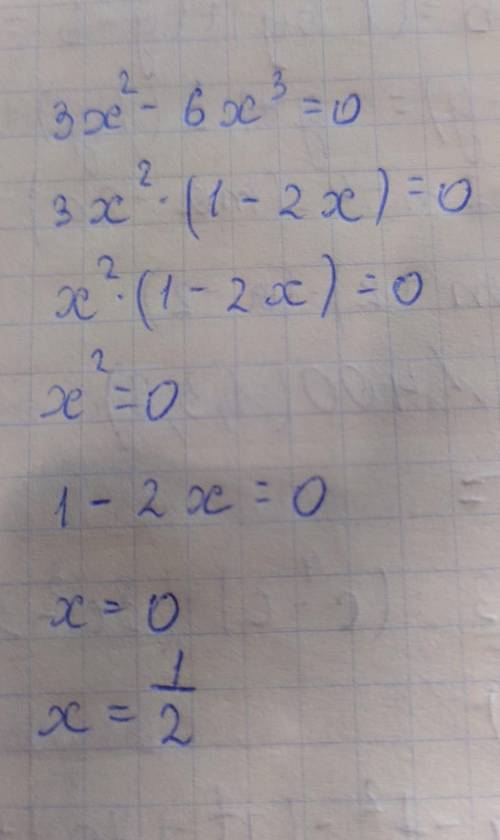 3x² - 6x³ = 0
3x² · (1 - 2x) = 0
x² · (1 - 2x) = 0
x² = 0
1 - 2x = 0
x = 0
x = 1/2